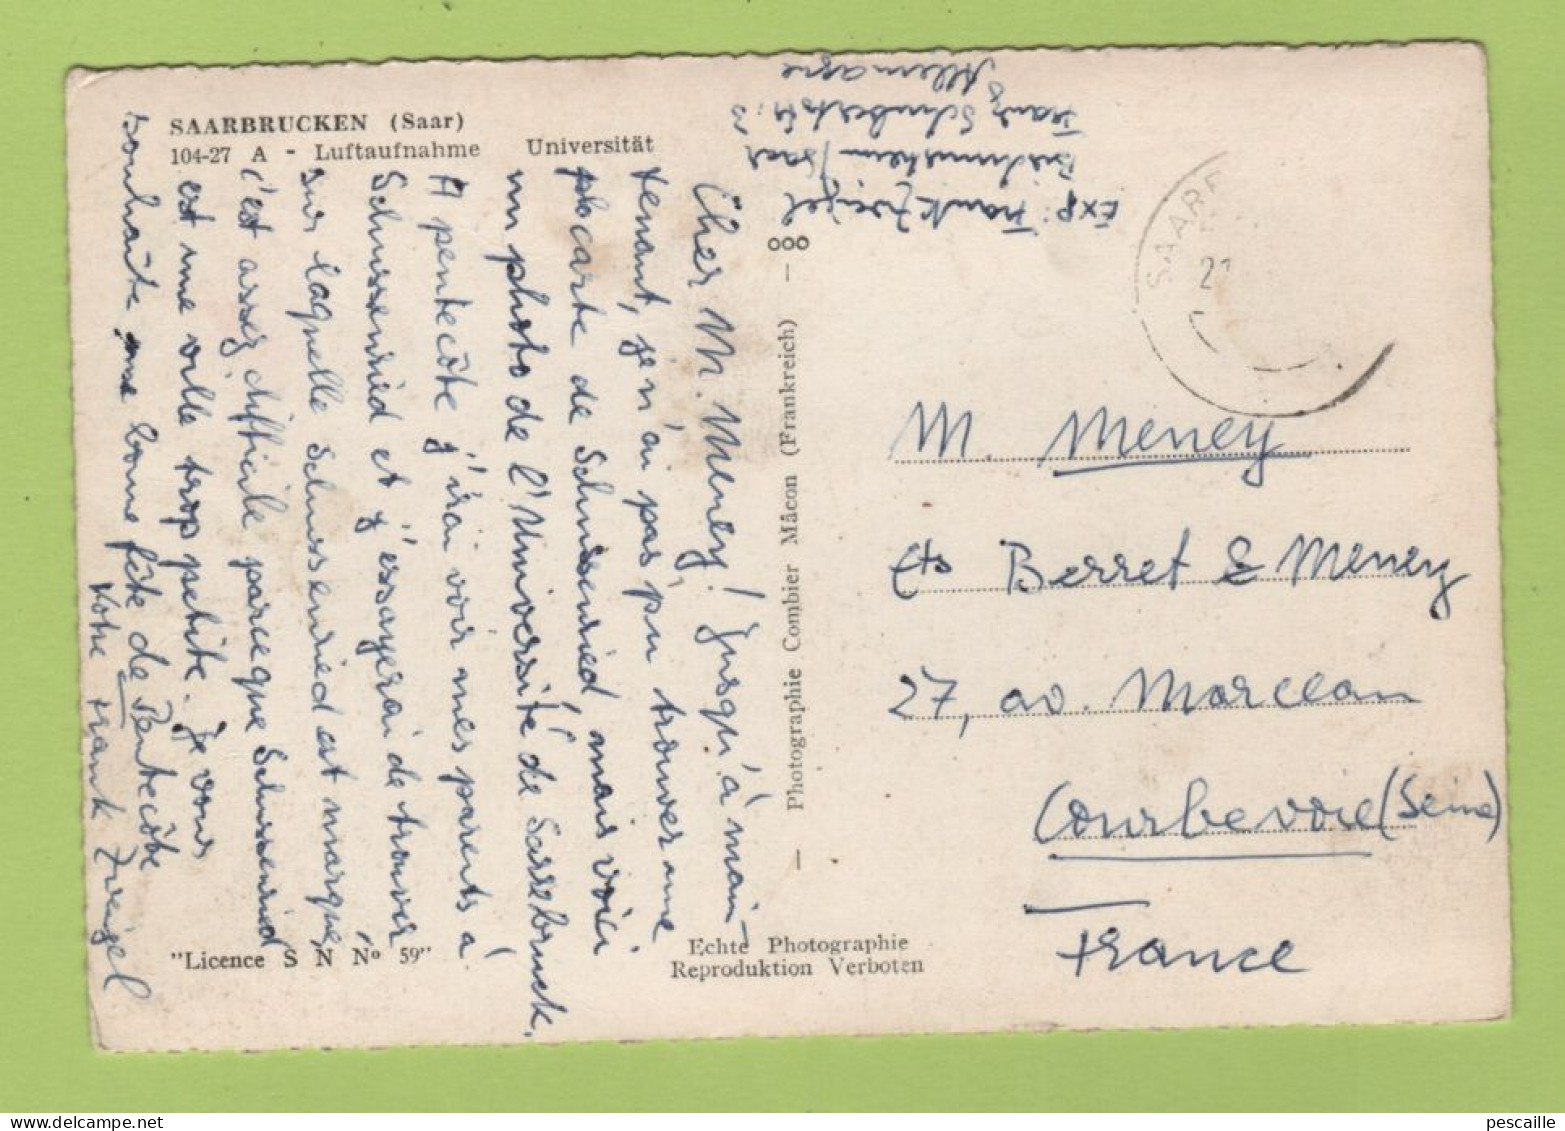 SAARBRUCKEN (Saar)
104-27 A - Luftaufnahme Universität
Cher M. Meney! Jusqu'à main-
tenant, je n'ai pas pu trouver une
carte de Schussenried, mais voici
un photo de l'Université de Sarrebruck.
A pentecôte j'irai voir mes parents à
Schussenried et j'essayerai de trouver
sur laquelle Schussenried est marqué,
c'est assez difficile parceque Schussenried
est une ville trop petite. Je vous
souhaite une bonne fête de Pentecôte
Votre Frank Zweigel
"Licence S N No 59"
— Photographie Combier Mâcon (Frankreich) —
ooo
Echte Photographie
Reproduktion Verboten
Exp: Frank Zweigel
Bischmisheim/Saar
Franz Schubertstr. 
Allemagne
SAARB
21
M. Meney
Ets Berret & Meney
27, av. Marceau
Courbevoie (Seine)
France
pescaille